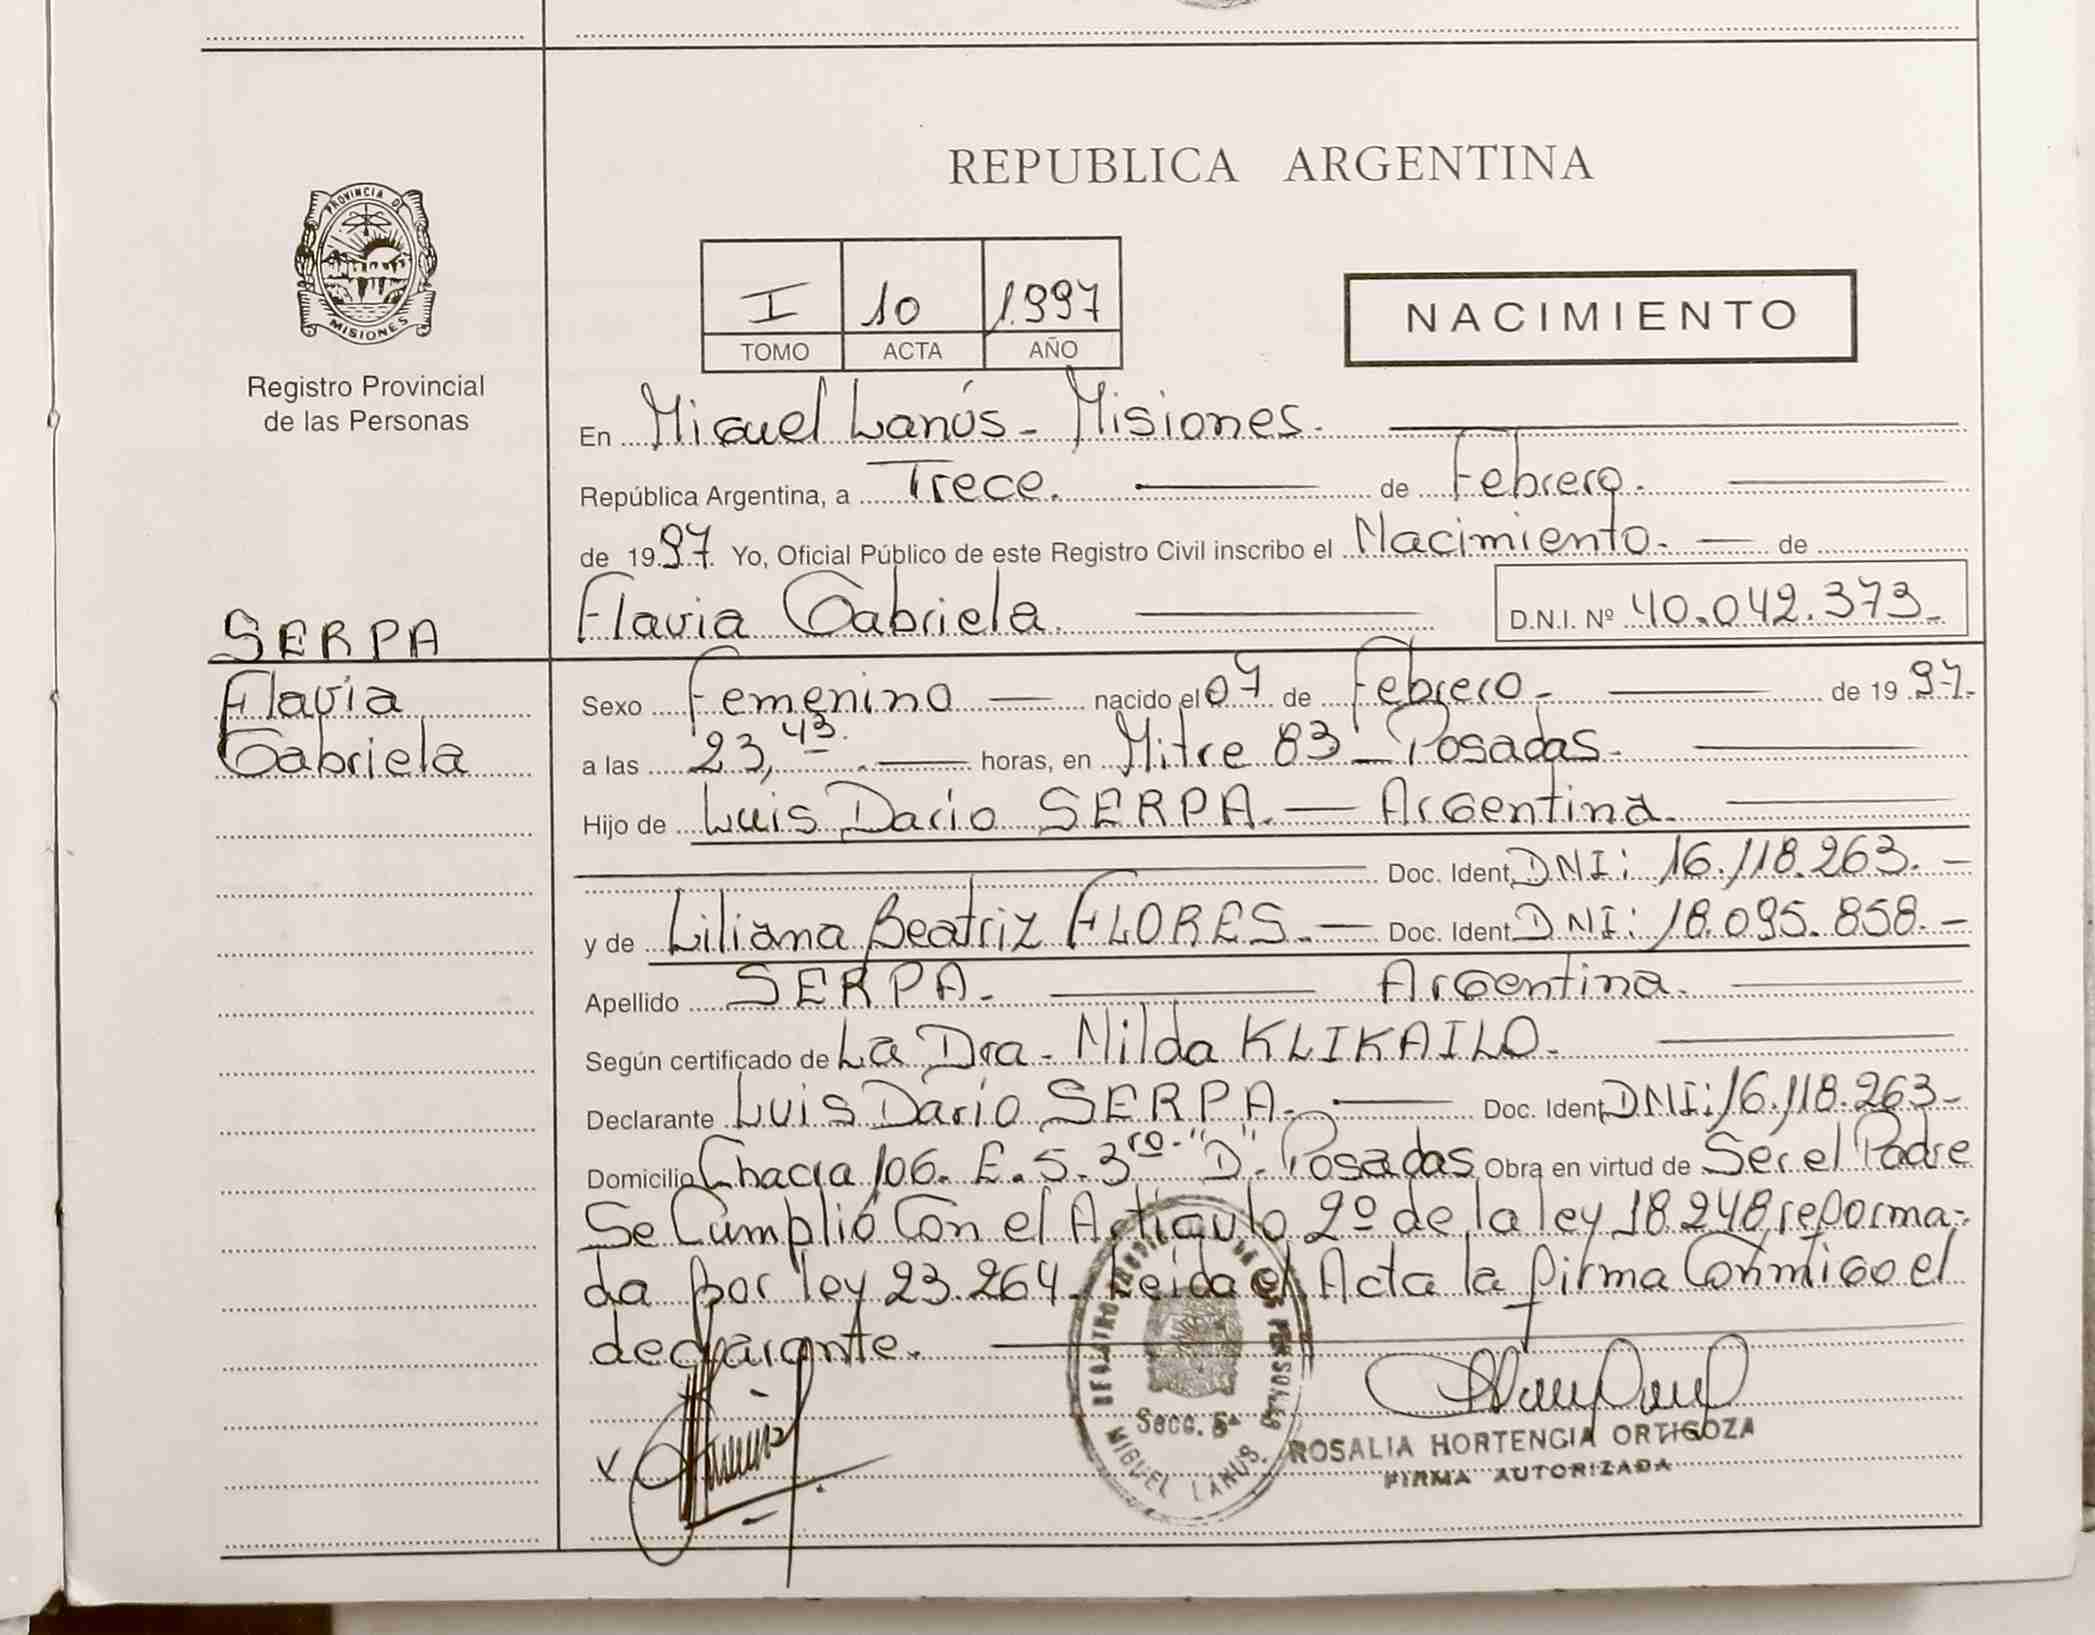 PROVINCIA DE
MISIONES
Registro Provincial
de las Personas
SERPA
Flavia
Gabriela
REPUBLICA ARGENTINA
I 10 1.997
TOMO ACTA AÑO
NACIMIENTO
En Miguel Lanús - Misiones.
República Argentina, a Trece. de Febrero.
de 1997. Yo, Oficial Público de este Registro Civil inscribo el Nacimiento. de
Flavia Gabriela. D.N.I. Nº 40.042.373.
Sexo Femenino nacido el 07 de Febrero. de 1997.
a las 23,43. horas, en Mitre 83 - Posadas.
Hijo de Luis Darío SERPA. Argentina.
Doc. Ident. DNI: 16.118.263.
y de Liliana Beatriz FLORES. Doc. Ident. DNI: 18.095.858.
Apellido SERPA. Argentina.
Según certificado de La Dra. Nilda KLIKAILO.
Declarante Luis Darío SERPA. Doc. Ident. DNI: 16.118.263
Domicilio Chacra 106. E. 5. 3ro. "D". Posadas Obra en virtud de Ser el Padre
Se Cumplió Con el Artículo 2º de la ley 18.248 reforma-
da por ley 23.264. Leida el Acta la firma Conmigo el
declarante.
Secc. 5ª
MIGUEL LANUS
ROSALIA HORTENCIA ORTIGOZA
FIRMA AUTORIZADA